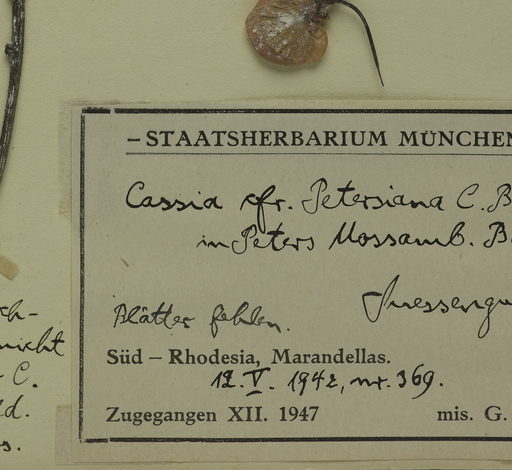 – STAATSHERBARIUM MÜNCHEN
Cassia cfr. Petersiana C. B
in Peters Mossamb. B
Suessengu
Blätter fehlen.
Süd – Rhodesia, Marandellas.
12. V. 1942, nr. 369.
Zugegangen XII. 1947 mis. G.
ch-
nicht
C.
d.
s.